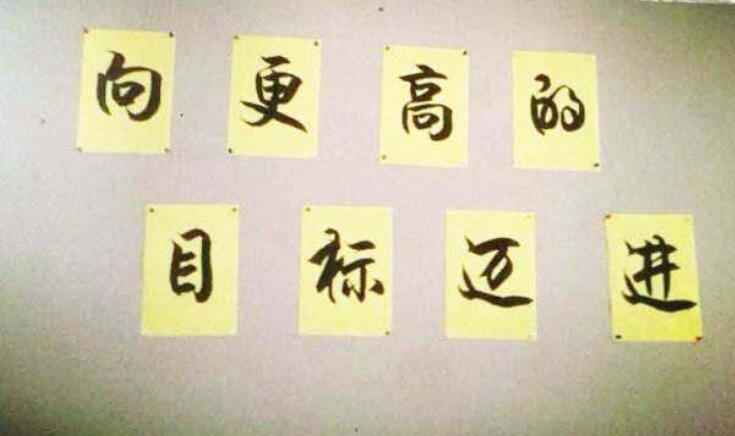 向更高的
目标迈进